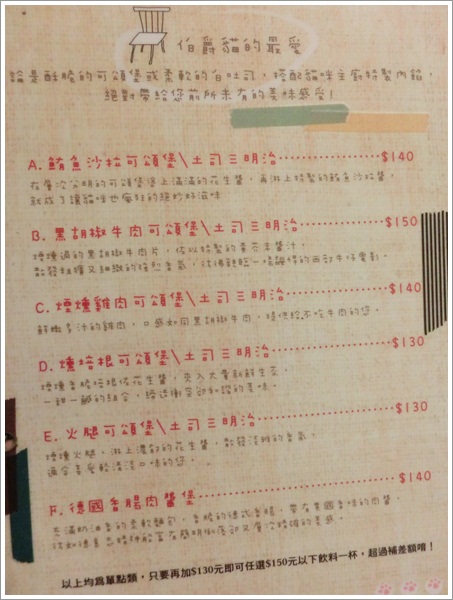 伯爵貓的最愛
論是酥脆的可頌堡或柔軟的白吐司，搭配貓咪主廚特製內餡，
絕對帶給您前所未有的美味感受！
A. 鮪魚沙拉可頌堡\土司三明治 $140
在層次分明的可頌堡塗上滿滿的花生醬，再淋上特製的鮪魚沙拉醬，
就成了讓貓咪也瘋狂的絕妙好滋味
B. 黑胡椒牛肉可頌堡\土司三明治 $150
煙燻過的黑胡椒牛肉片，佐以特製的
C. 煙燻雞肉可頌堡\土司三明治 $140
鮮嫩多汁的雞肉，口感如同黑胡椒牛肉，提供給不吃牛肉的您。
D. 燻培根可頌堡\土司三明治 $130
煙燻香脆培根佐花生醬，夾入大量新鮮生菜
一甜一鹹的組合，締造衝突卻和諧的美味。
E. 火腿可頌堡\土司三明治 $130
煙燻火腿，淋上濃郁的花生醬，散發淡雅的香氣，
適合喜愛輕淡口味的您。
F. 德國香腸肉醬堡 $140
充滿奶油香的柔軟麵包，香脆的德式香腸，帶有異國香味的肉醬，
以上均為單點類，只要再加$130元即可任選$150元以下飲料一杯，超過補差額唷！